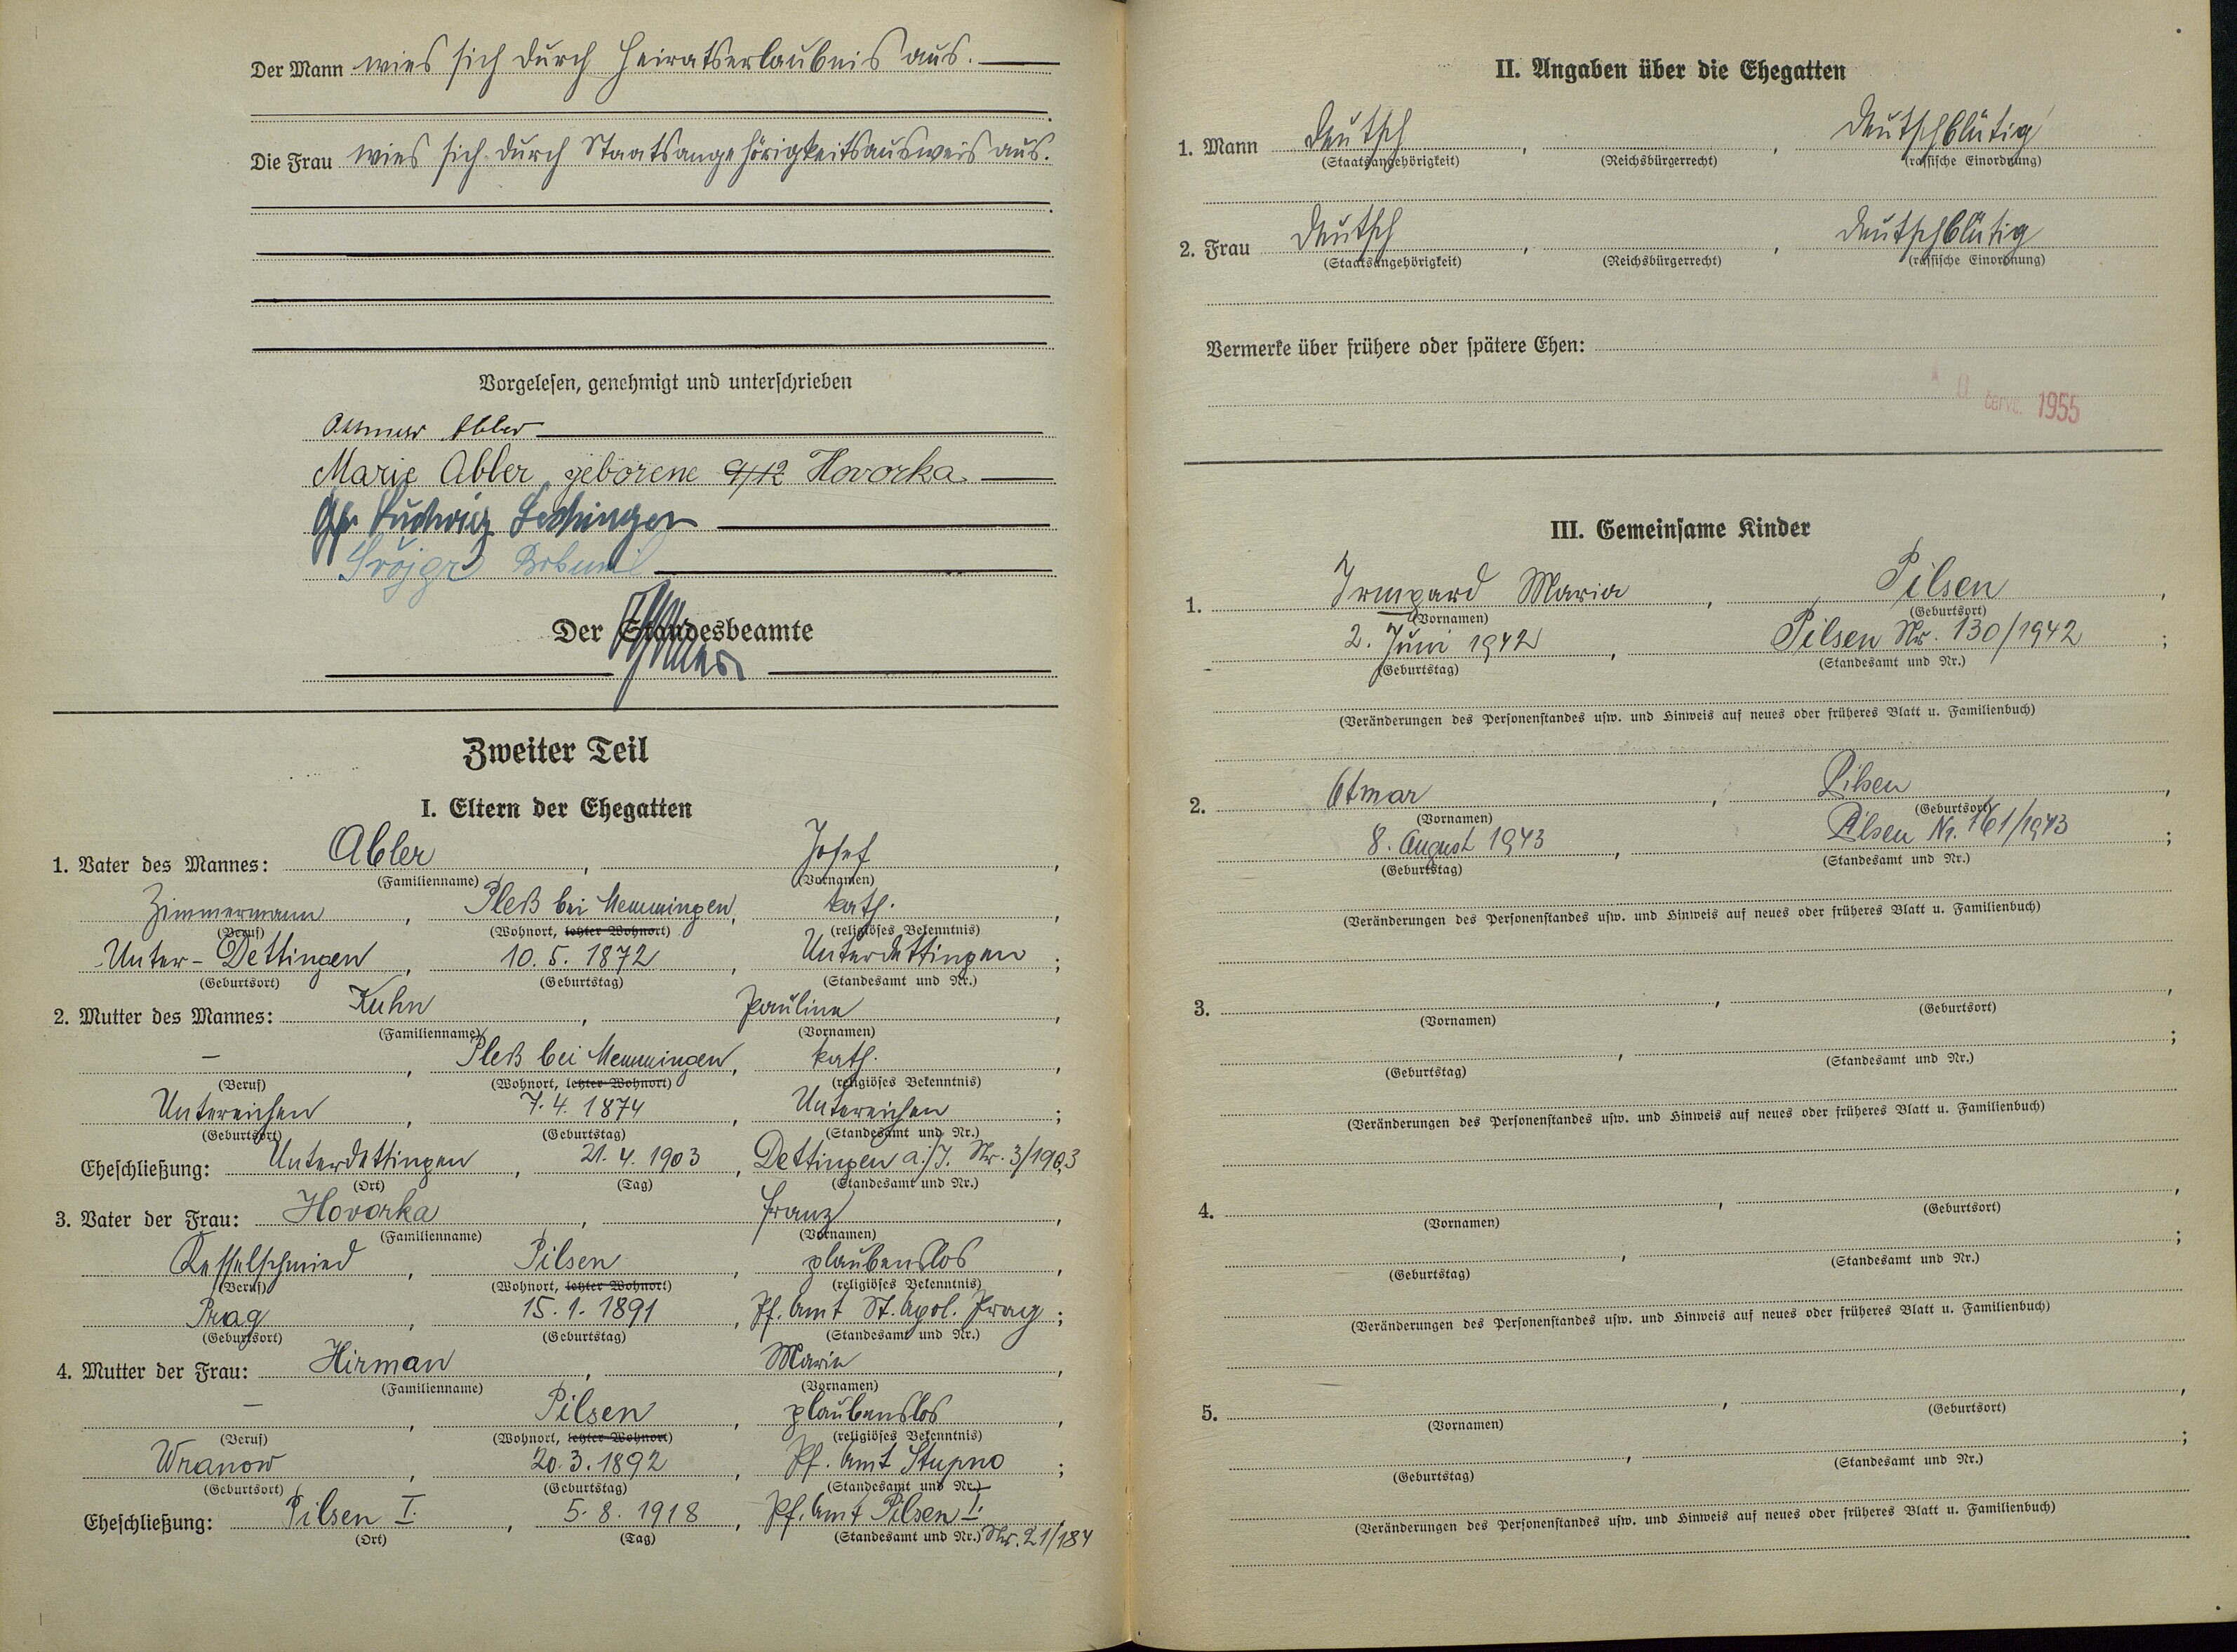 Der Mann wies sich durch Heiratserlaubnis aus.
Die Frau wies sich durch Staatsangehörigkeitsausweis aus.
Vorgelesen, genehmigt und unterschrieben
Abler
Marie Abler geborene Hovorka.
Ludwig
Der Standesbeamte
Zweiter Teil
I. Eltern der Ehegatten
1. Vater des Mannes: Abler, Josef,
(Familienname) (Vornamen)
Zimmermann, Pleß bei Memmingen, kath.,
(Beruf) (Wohnort, letzter Wohnort) (religiöses Bekenntnis)
Unter-Dettingen, 10.5.1872, Unterdettingen;
(Geburtsort) (Geburtstag) (Standesamt und Nr.)
2. Mutter des Mannes: Kuhn, Pauline,
(Familienname) (Vornamen)
–, Pleß bei Memmingen, kath.,
(Beruf) (Wohnort, letzter Wohnort) (religiöses Bekenntnis)
Untereichen, 7.4.1874, Untereichen;
(Geburtsort) (Geburtstag) (Standesamt und Nr.)
Eheschließung: Unterdettingen, 21.4.1903, Dettingen a./I. Nr. 3/1903
(Ort) (Tag) (Standesamt und Nr.)
3. Vater der Frau: Hovorka, Franz,
(Familienname) (Vornamen)
Kesselschmied, Pilsen, glaubenslos,
(Beruf) (Wohnort, letzter Wohnort) (religiöses Bekenntnis)
Prag, 15.1.1891, Pf. Amt St. Apol. Prag;
(Geburtsort) (Geburtstag) (Standesamt und Nr.)
4. Mutter der Frau: Hirman, Marie,
(Familienname) (Vornamen)
–, Pilsen, glaubenslos,
(Beruf) (Wohnort, letzter Wohnort) (religiöses Bekenntnis)
Wranow, 20.3.1892, Pf. Amt Stupno;
(Geburtsort) (Geburtstag) (Standesamt und Nr.)
Eheschließung: Pilsen I., 5.8.1918, Pf. Amt Pilsen I.
(Ort) (Tag) (Standesamt und Nr.) Nr. 21/184
II. Angaben über die Ehegatten
1. Mann Deutsch, , Deutschblütig
(Staatsangehörigkeit) (Reichsbürgerrecht) (rassische Einordnung)
2. Frau Deutsch, , Deutschblütig
(Staatsangehörigkeit) (Reichsbürgerrecht) (rassische Einordnung)
Vermerke über frühere oder spätere Ehen:
1955
III. Gemeinsame Kinder
1. Irmgard Maria, Pilsen,
(Vornamen) (Geburtsort)
2. Juni 1942, Pilsen Nr. 130/1942;
(Geburtstag) (Standesamt und Nr.)
(Veränderungen des Personenstandes usw. und Hinweis auf neues oder früheres Blatt u. Familienbuch)
2. Otmar, Pilsen,
(Vornamen) (Geburtsort)
8. August 1943, Pilsen Nr. 161/1943;
(Geburtstag) (Standesamt und Nr.)
(Veränderungen des Personenstandes usw. und Hinweis auf neues oder früheres Blatt u. Familienbuch)
3. , ,
(Vornamen) (Geburtsort)
, ;
(Geburtstag) (Standesamt und Nr.)
(Veränderungen des Personenstandes usw. und Hinweis auf neues oder früheres Blatt u. Familienbuch)
4. , ,
(Vornamen) (Geburtsort)
, ;
(Geburtstag) (Standesamt und Nr.)
(Veränderungen des Personenstandes usw. und Hinweis auf neues oder früheres Blatt u. Familienbuch)
5. , ,
(Vornamen) (Geburtsort)
, ;
(Geburtstag) (Standesamt und Nr.)
(Veränderungen des Personenstandes usw. und Hinweis auf neues oder früheres Blatt u. Familienbuch)